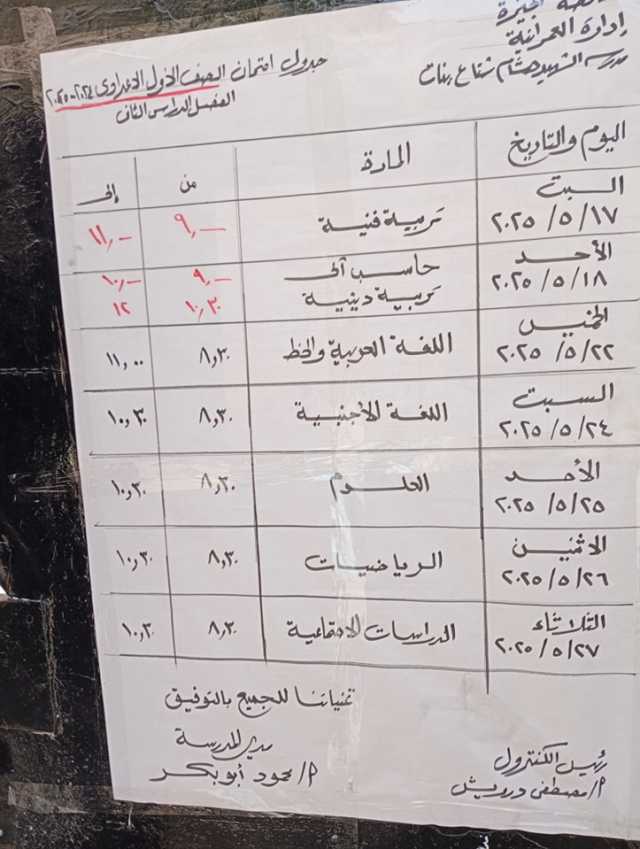 الجيزة
إدارة العمرانية
مدرسة الشهيد هشام شتا ع بنات
جدول امتحان الصف الأول الإعدادى ٢٠٢٤-٢٠٢٥
الفصل الدراسى الثانى
اليوم والتاريخ المادة من إلى
السبت
٢٠٢٥/٥/١٧ تربية فنية ٩,— ١١,—
الأحد
٢٠٢٥/٥/١٨ حاسب آلى ٩,— ١٠,—
تربية دينية ١٠,٣٠ ١٢
الخميس
٢٠٢٥/٥/٢٢ اللغة العربية والخط ٨,٣٠ ١١,٠٠
السبت
٢٠٢٥/٥/٢٤ اللغة الأجنبية ٨,٣٠ ١٠,٣٠
الأحد
٢٠٢٥/٥/٢٥ العلوم ٨,٣٠ ١٠,٣٠
الاثنين
٢٠٢٥/٥/٢٦ الرياضيات ٨,٣٠ ١٠,٣٠
الثلاثاء
٢٠٢٥/٥/٢٧ الدراسات الاجتماعية ٨,٣٠ ١٠,٣٠
تمنياتنا للجميع بالتوفيق
رئيس الكنترول
أ/مصطفى درويش
مدير المدرسة
أ/محمود أبوبكر